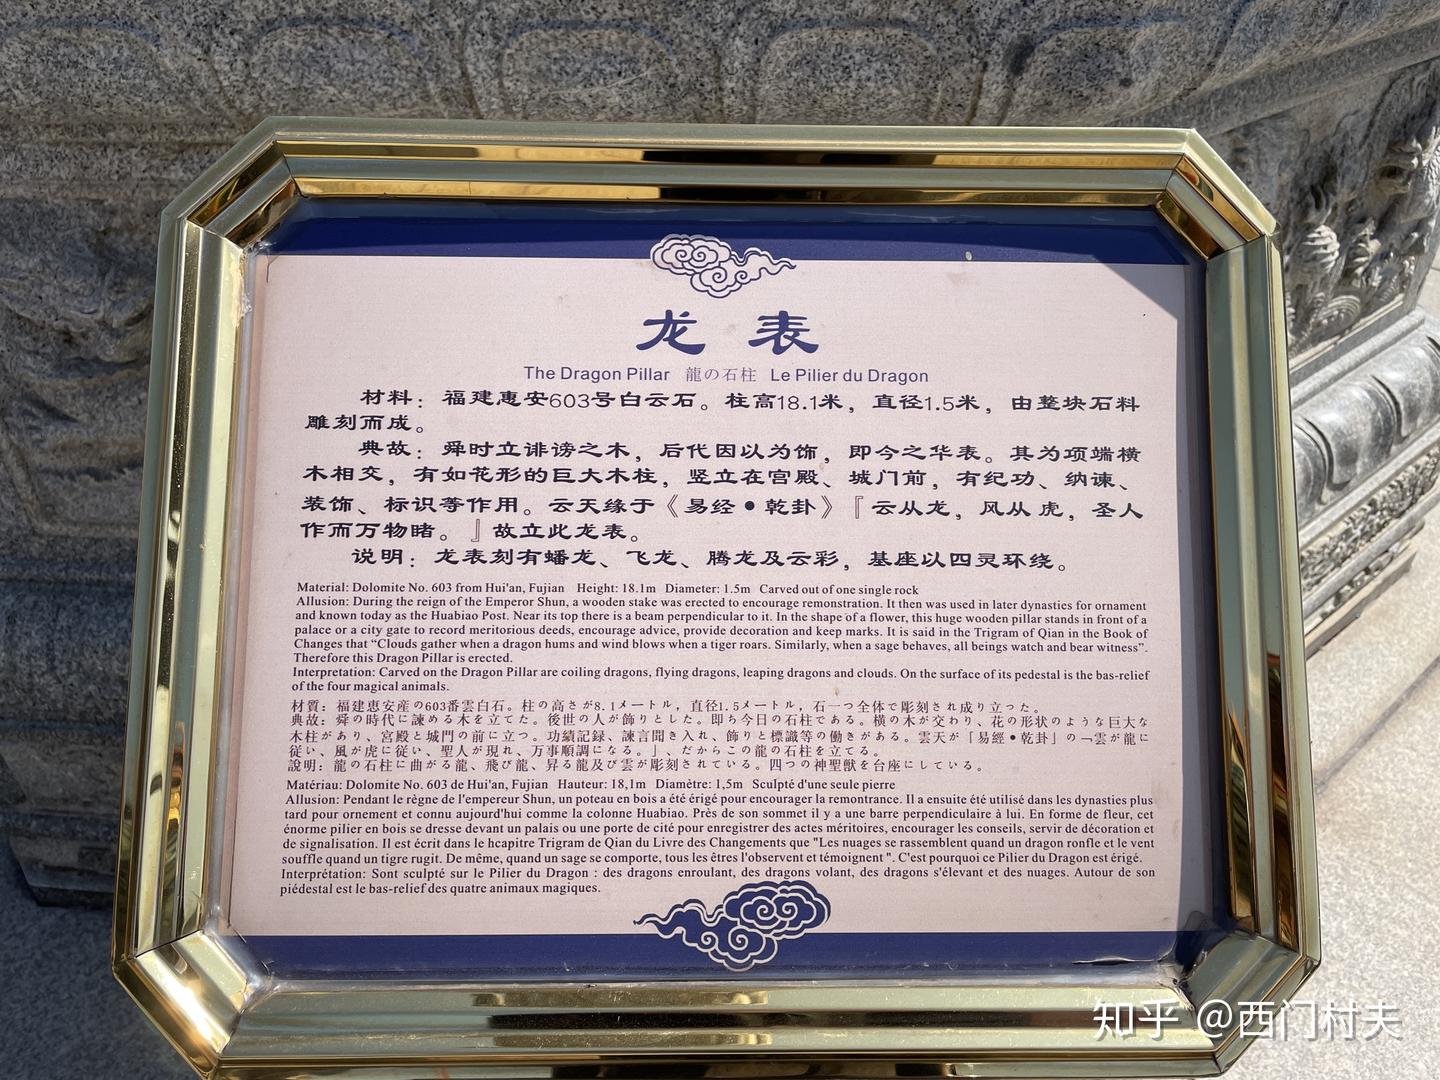 龙 表
The Dragon Pillar 龍の石柱 Le Pilier du Dragon
材料：福建惠安603号白云石。柱高18.1米，直径1.5米，由整块石料
雕刻而成。
典故：舜时立诽谤之木，后代因以为饰，即今之华表。其为项端横
木相交，有如花形的巨大木柱，竖立在宫殿、城门前，有纪功、纳谏、
装饰、标识等作用。云天缘于《易经•乾卦》『云从龙，风从虎，圣人
作而万物睹。』故立此龙表。
说明：龙表刻有蟠龙、飞龙、腾龙及云彩，基座以四灵环绕。
Material: Dolomite No. 603 from Hui'an, Fujian Height: 18.1m Diameter: 1.5m Carved out of one single rock
Allusion: During the reign of the Emperor Shun, a wooden stake was erected to encourage remonstration. It then was used in later dynasties for ornament
and known today as the Huabiao Post. Near its top there is a beam perpendicular to it. In the shape of a flower, this huge wooden pillar stands in front of a
palace or a city gate to record meritorious deeds, encourage advice, provide decoration and keep marks. It is said in the Trigram of Qian in the Book of
Changes that “Clouds gather when a dragon hums and wind blows when a tiger roars. Similarly, when a sage behaves, all beings watch and bear witness”.
Therefore this Dragon Pillar is erected.
Interpretation: Carved on the Dragon Pillar are coiling dragons, flying dragons, leaping dragons and clouds. On the surface of its pedestal is the bas-relief
of the four magical animals.
材質：福建恵安産の603番雲白石。柱の高さが8.1メートル，直径1.5メートル，石一つ全体で彫刻され成り立った。
典故：舜の時代に諫める木を立てた。後世の人が飾りとした。即ち今日の石柱である。横の木が交わり、花の形状のような巨大な
木柱があり、宮殿と城門の前に立つ。功績記録、諫言聞き入れ、飾りと標識等の働きがある。雲天が「易經•乾卦」の「雲が龍に
従い、風が虎に従い、聖人が現れ、万事順調になる。」、だからこの龍の石柱を立てる。
說明：龍の石柱に曲がる龍、飛び龍、昇る龍及び雲が彫刻されている。四つの神聖獣を台座にしている。
Matériau: Dolomite No. 603 de Hui'an, Fujian Hauteur: 18,1m Diamètre: 1,5m Sculpté d'une seule pierre
Allusion: Pendant le règne de l'empereur Shun, un poteau en bois a été érigé pour encourager la remontrance. Il a ensuite été utilisé dans les dynasties plus
tard pour ornement et connu aujourd'hui comme la colonne Huabiao. Près de son sommet il y a une barre perpendiculaire à lui. En forme de fleur, cet
énorme pilier en bois se dresse devant un palais ou une porte de cité pour enregistrer des actes méritoires, encourager les conseils, servir de décoration et
de signalisation. Il est écrit dans le hcapitre Trigram de Qian du Livre des Changements que "Les nuages se rassemblent quand un dragon ronfle et le vent
souffle quand un tigre rugit. De même, quand un sage se comporte, tous les êtres l'observent et témoignent ". C'est pourquoi ce Pilier du Dragon est érigé.
Interprétation: Sont sculpté sur le Pilier du Dragon : des dragons enroulant, des dragons volant, des dragons s'élevant et des nuages. Autour de son
piédestal est le bas-relief des quatre animaux magiques.
知乎 @西门村夫